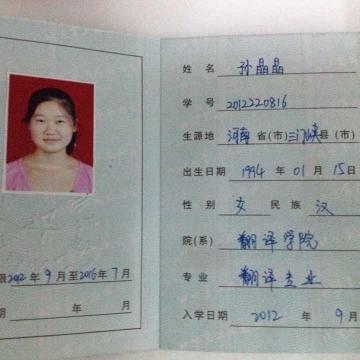 姓名 孙晶晶
学号 2012220816
生源地 河南省(市)三门峡县(市)
出生日期 1994年01月15日
性别 女 民族 汉
院(系) 翻译学院
专业 翻译专业
入学日期 2012年9月
限2012年9月至2016年7月
期 年 月